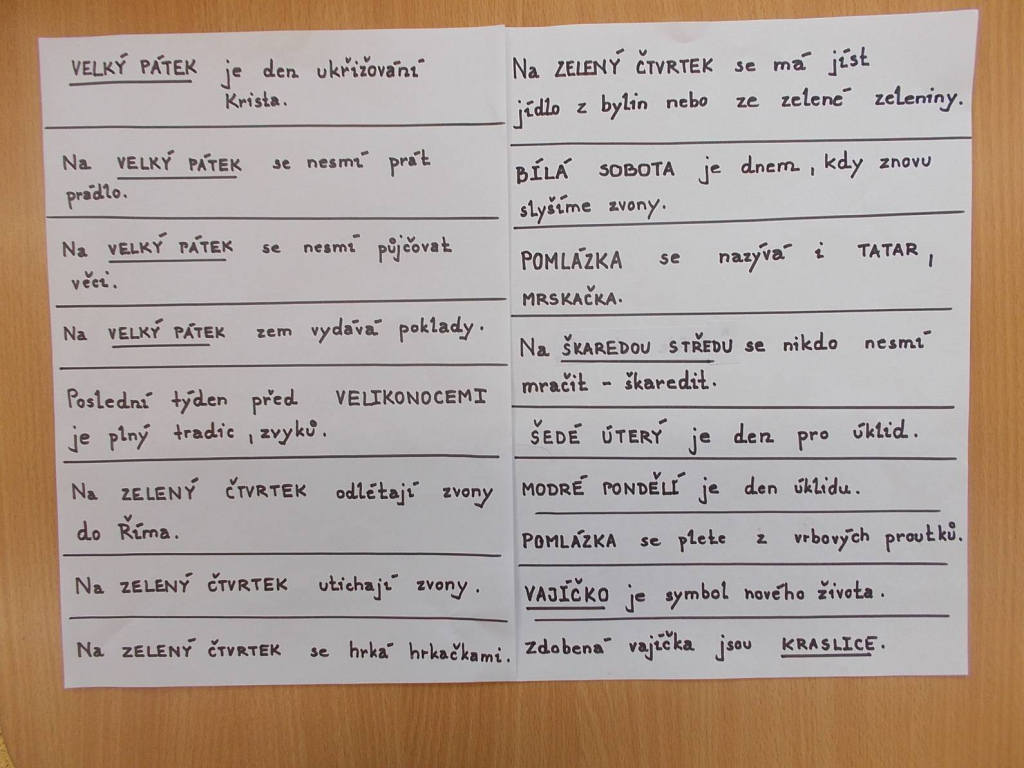 VELKÝ PÁTEK je den ukřižování
Krista.
Na VELKÝ PÁTEK se nesmí prát
prádlo.
Na VELKÝ PÁTEK se nesmí půjčovat
věci.
Na VELKÝ PÁTEK zem vydává poklady.
Poslední týden před VELIKONOCEMI
je plný tradic, zvyků.
Na ZELENÝ ČTVRTEK odlétají zvony
do Říma.
Na ZELENÝ ČTVRTEK utichají zvony.
Na ZELENÝ ČTVRTEK se hrká hrkačkami.
Na ZELENÝ ČTVRTEK se má jíst
jídlo z bylin nebo ze zelené zeleniny.
BÍLÁ SOBOTA je dnem, kdy znovu
slyšíme zvony.
POMLÁZKA se nazývá i TATAR,
MRSKAČKA.
Na ŠKAREDOU STŘEDU se nikdo nesmí
mračit - škaredit.
ŠEDÉ ÚTERÝ je den pro úklid.
MODRÉ PONDĚLÍ je den úklidu.
POMLÁZKA se plete z vrbových proutků.
VAJÍČKO je symbol nového života.
Zdobená vajíčka jsou KRASLICE.